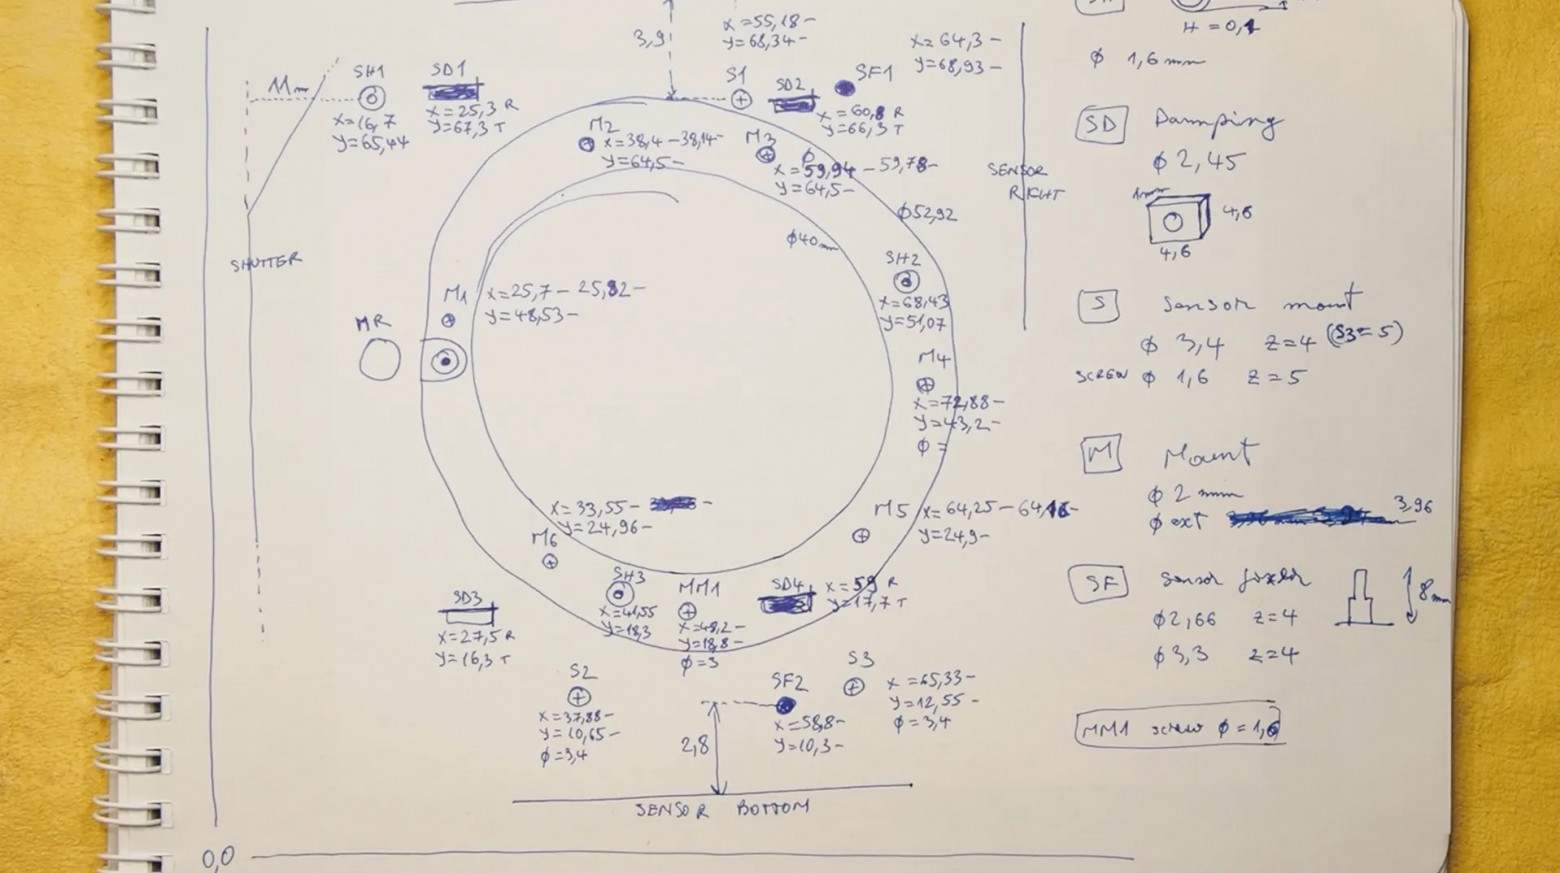 3,9
x=55,18-
y=68,34-
x=64,3-
y=68,93-
11m
SH1
x=16,7
y=65,44
SD1
x=25,3 R
y=67,3 T
S1
SD2
SF1
x=60,8 R
y=66,3 T
M2
x=38,4-38,14-
y=64,5-
M3
x=59,94-59,78-
y=64,5-
SENSOR
RIGHT
ϕ52,92
ϕ40m
SHUTTER
SH2
x=68,43
y=51,07
M1
x=25,7-25,82-
y=48,53-
MR
M4
x=72,88-
y=43,2-
ϕ=
x=33,55-
y=24,96-
M6
M5
x=64,25-64,16-
y=24,9-
SH3
x=41,55
y=18,3
MM1
x=48,2-
y=18,8-
ϕ=3
SD4
x=59 R
y=17,7 T
SD3
x=27,5 R
y=16,3 T
S2
x=37,88-
y=10,65-
ϕ=3,4
SF2
x=58,8-
y=10,3-
S3
x=65,33-
y=12,55-
ϕ=3,4
2,8
SENSOR BOTTOM
0,0
H=0,1
ϕ 1,6mm
SD Damping
ϕ 2,45
1mm
4,6
4,6
S Sensor mount
ϕ 3,4 z=4 (S3=5)
SCREW ϕ 1,6 z=5
M Mount
ϕ 2 mm
ϕ ext 3,96
SF Sensor fixer
ϕ2,66 z=4
ϕ3,3 z=4
8mm
MM1 screw ϕ=1,6